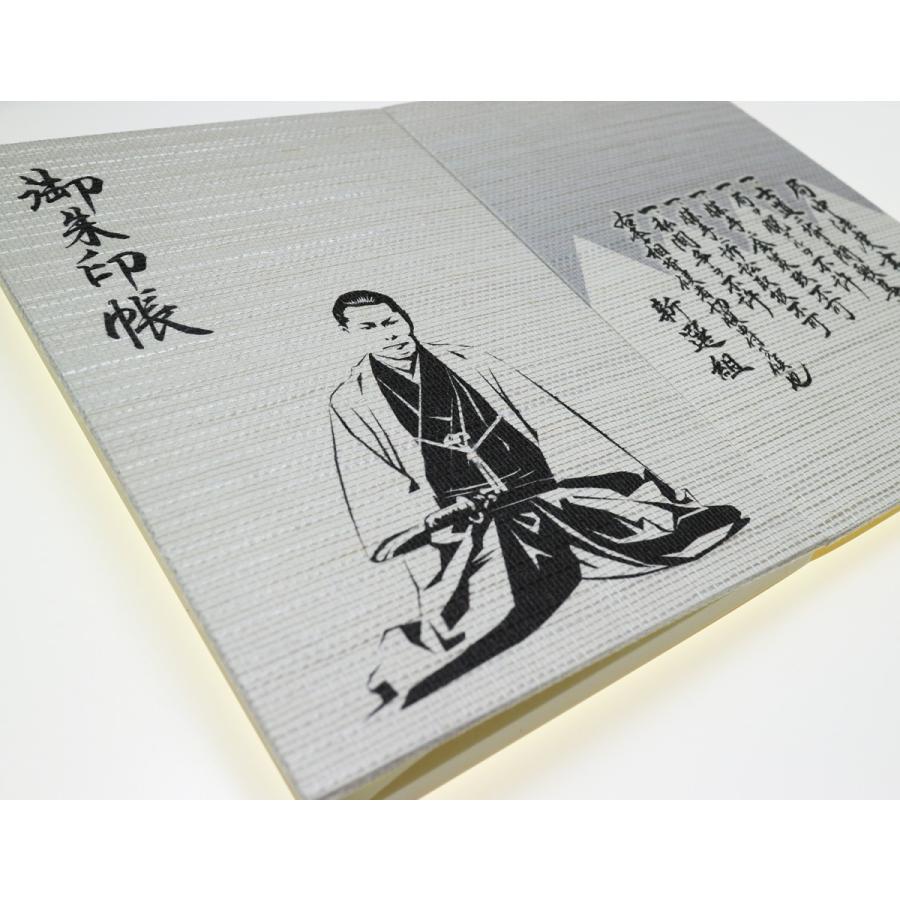 御朱印帳
局中法度書
一士道ニ背間敷事
一局ヲ脱スルヲ不許
一勝手ニ金策致不可
一勝手ニ訴訟取扱不可
一私ノ闘争ヲ不許
右条々相背候者切腹申付ベク候也
新選組